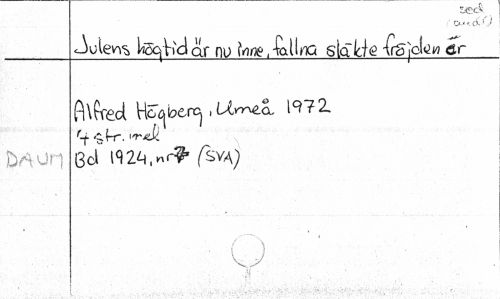 sed
Julens högtid är nu inne, fallna släkte fröjden är
Alfred Högberg, Umeå 1972
4 str. mel
DAUM Bd 1924, nr 7 (SVA)